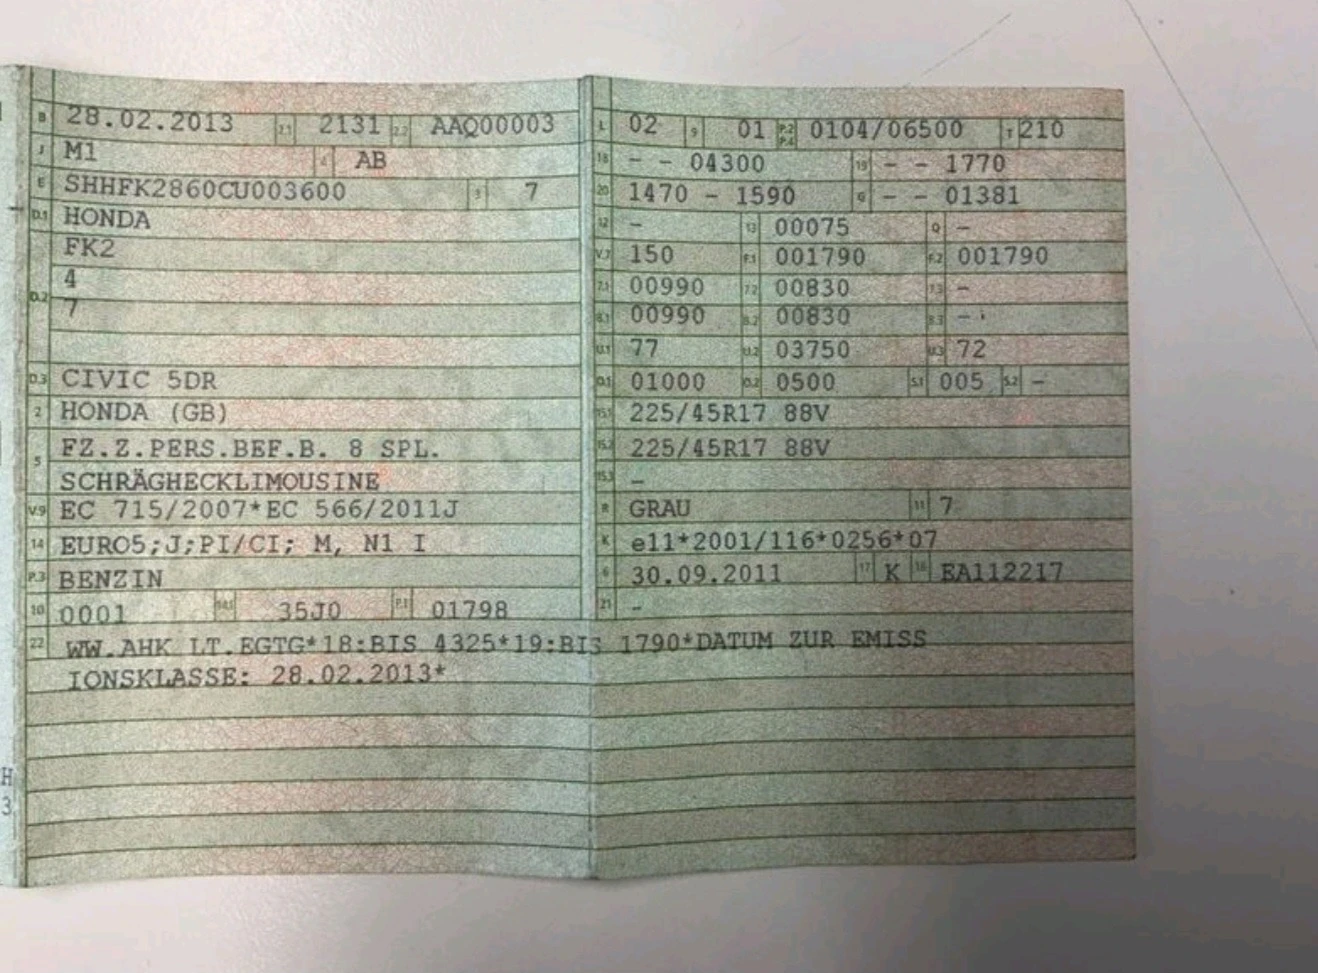 B 28.02.2013 2.1 2131 2.2 AAQ00003
J M1 4 AB
E SHHFK2860CU003600 3 7
D.1 HONDA
FK2
D.2 4
7
D.3 CIVIC 5DR
2 HONDA (GB)
5 FZ.Z.PERS.BEF.B. 8 SPL.
SCHRÄGHECKLIMOUSINE
V.9 EC 715/2007*EC 566/2011J
14 EURO5;J;PI/CI; M, N1 I
P.3 BENZIN
10 0001 14.1 35J0 P.1 01798
L 02 9 01 P.2 P.4 0104/06500 T 210
18 - - 04300 19 - - 1770
20 1470 - 1590 G - - 01381
12 - 13 00075 Q -
V.7 150 F.1 001790 F.2 001790
7.1 00990 7.2 00830 7.3 -
8.1 00990 8.2 00830 8.3 -
U.1 77 U.2 03750 U.3 72
O.1 01000 O.2 0500 S.1 005 S.2 -
15.1 225/45R17 88V
15.2 225/45R17 88V
15.3 -
R GRAU 11 7
K e11*2001/116*0256*07
6 30.09.2011 17 K 16 EA112217
21 -
22 WW.AHK LT.EGTG*18:BIS 4325*19:BIS 1790*DATUM ZUR EMISS
IONSKLASSE: 28.02.2013*
H
3